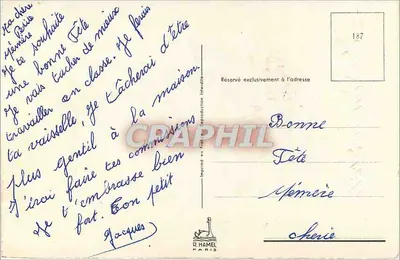 Ma chère
Mémère
Je te souhaite
une bonne Fête
Je vais tacher de mieux
travailler en classe. Je ferais
ta vaisselle, Je tâcherai d'être
plus gentil à la maison
J'irai faire tes commissions
Je t'embrasse bien
fort. Ton petit
Jacques
187
Réservé exclusivement à l'adresse
Bonne
Fête
Mémère
cherie
CPAPHIL
R. HAMEL
PARIS